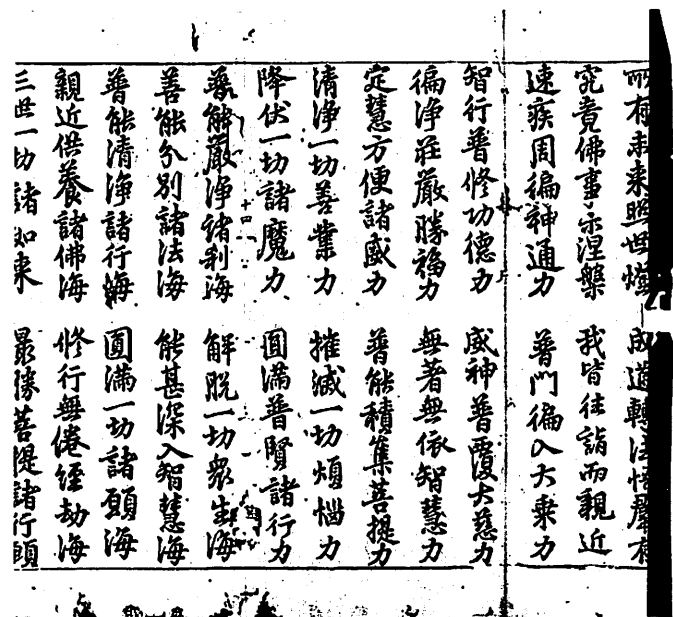 所有未来照世燈　成道轉法悟羣有
究竟佛事示涅槃　我皆往詣而親近
速疾周徧神通力　普門徧入大乗力
智行普修功德力　威神普覆大慈力
徧淨莊嚴勝福力　無著無依智慧力
定慧方便諸威力　普能積集菩提力
清淨一切善業力　摧滅一切煩惱力
降伏一切諸魔力　圓滿普賢諸行力
普能嚴淨諸刹海　解脫一切衆生海
善能分別諸法海　能甚深入智慧海
普能清淨諸行海　圓滿一切諸願海
親近供養諸佛海　修行無倦經劫海
三世一切諸如来　最勝菩提諸行願